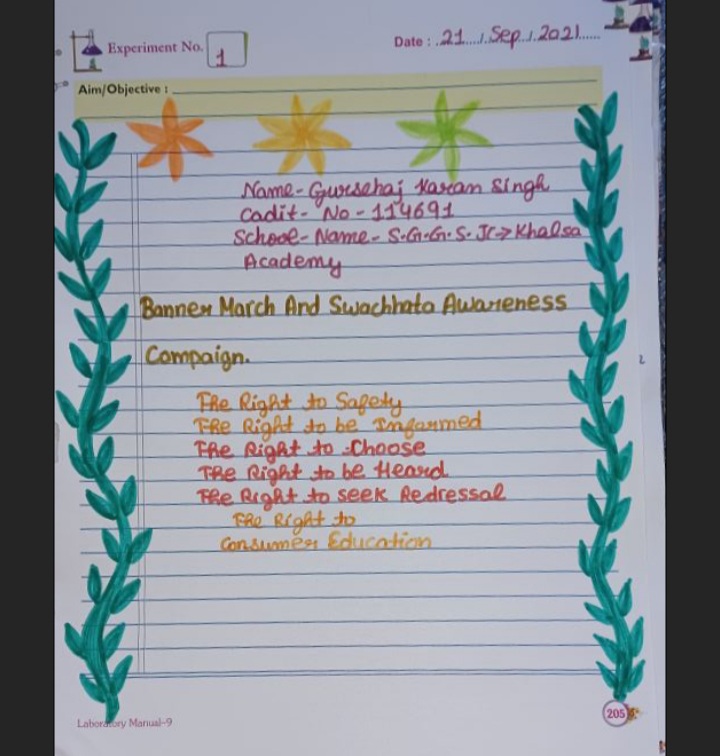 Experiment No. 1
Date : 21 / Sep / 2021
Aim/Objective :
Name- Gursehaj Karan Singh
Cadit- No - 114691
School- Name - S.G.G.S. Jr -> Khalsa
Academy
Banner March And Swachhata Awareness
Compaign.
The Right to Safety
The Right to be Informed
The Right to Choose
The Right to be Heard
The Right to seek Redressal
The Right to
Consumer Education
Laboratory Manual-9
205